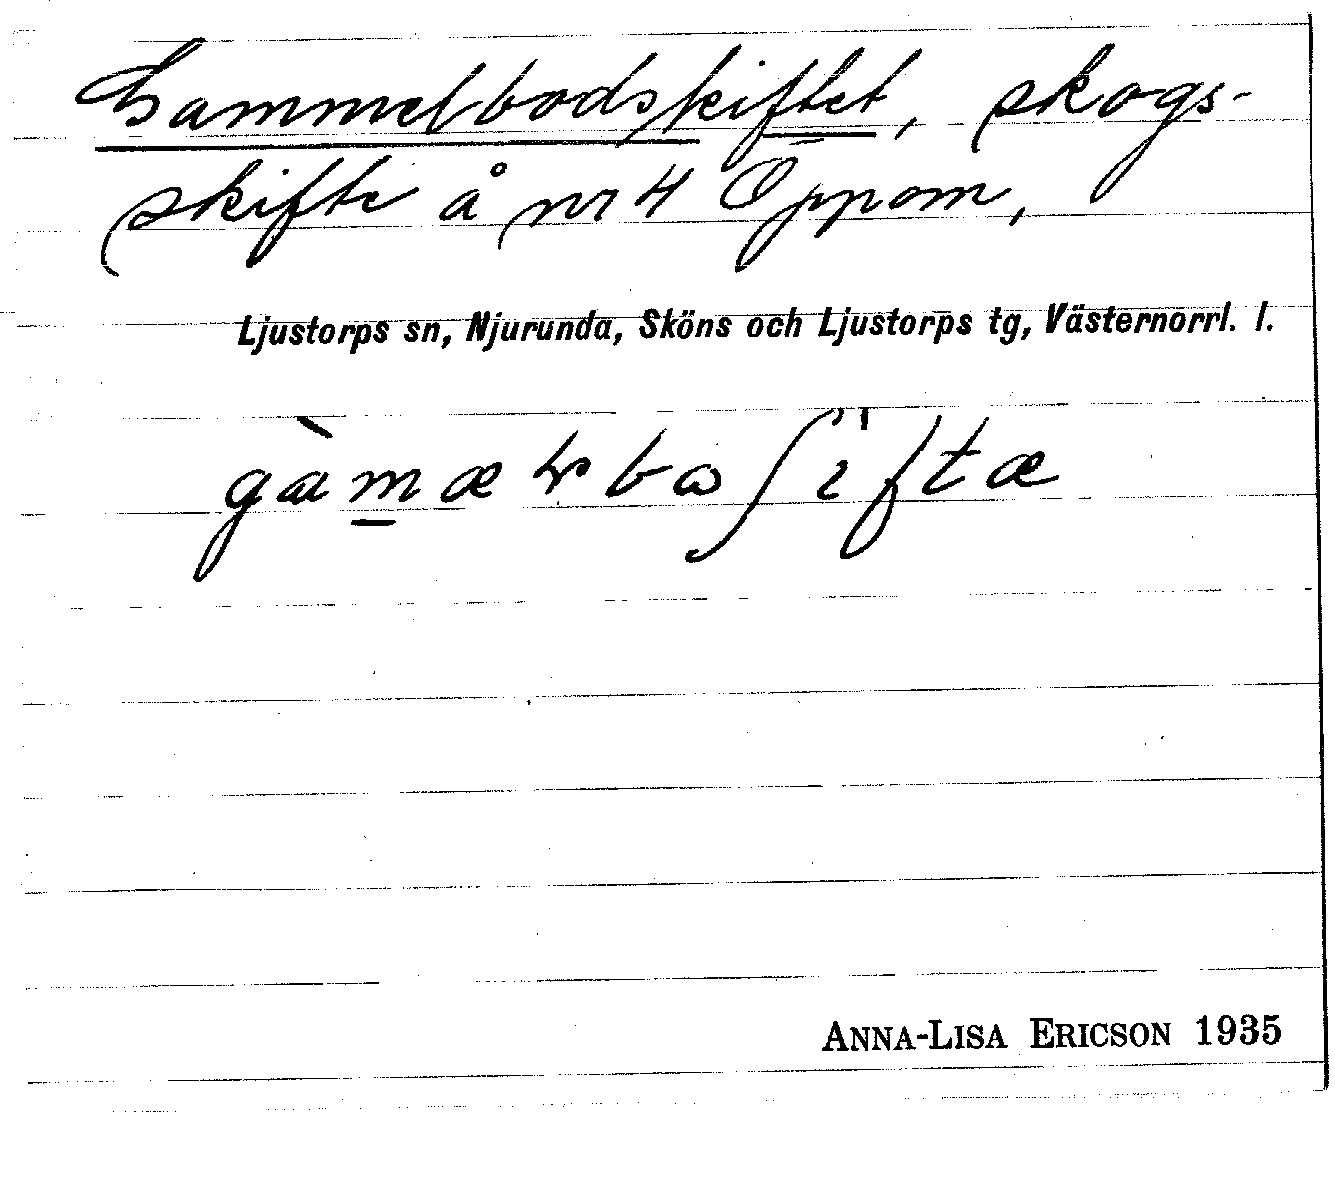 Gammelbodskiftet, skogs-
skifte å nr 4 Öppom,
Ljustorps sn, Njurunda, Sköns och Ljustorps tg, Västernorrl. l.
ANNA-LISA ERICSON 1935